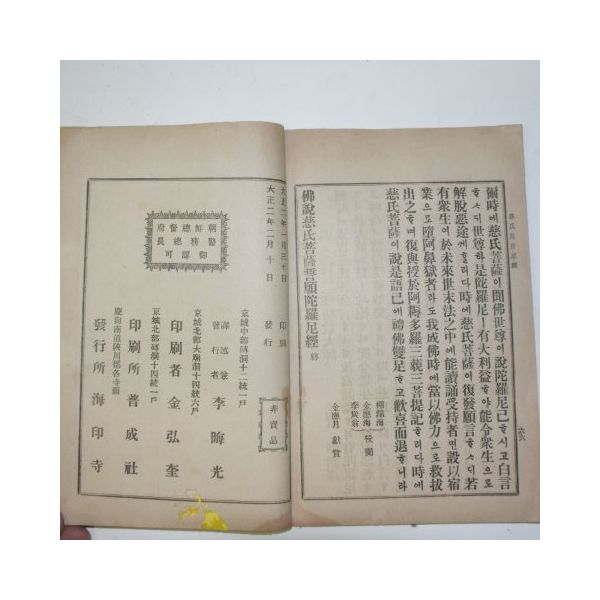 爾時에慈氏菩薩이聞佛世尊이說陀羅尼已ᄒᆞ시고白言
ᄒᆞ샤ᄃᆡ世尊하是陀羅尼ㅣ有大利益ᄒᆞ야能令衆生으로
解脫惡途케ᄒᆞ리다時에慈氏菩薩이復發願言ᄒᆞ샤ᄃᆡ若
有衆生이於未來世末法之中에能讀誦受持者면設以宿
業으로墮阿鼻獄者라도我成佛時에當以佛力으로救拔
出之ᄒᆞ며復與授於阿耨多羅三藐三菩提記ᄒᆞ리다時에
慈氏菩薩이說是語已에禮佛雙足ᄒᆞ고歡喜而退ᄒᆞ니라
金應海
李寅翁 校閱
金應月 獻賞
佛說慈氏菩薩誓願陀羅尼經 終
六六
大正二年一月三十日 印刷
大正二年二月十日 發行
朝鮮總督府
警務總長
御認可
非賣品
京城中部磚洞十二統一戶
譯述兼
發行者 李晦光
京城北部大廟洞十四統六戶
印刷者 金弘奎
京城北部磚洞十四統一戶
印刷所 普成社
慶尙南道陜川郡各寺面
發行所 海印寺